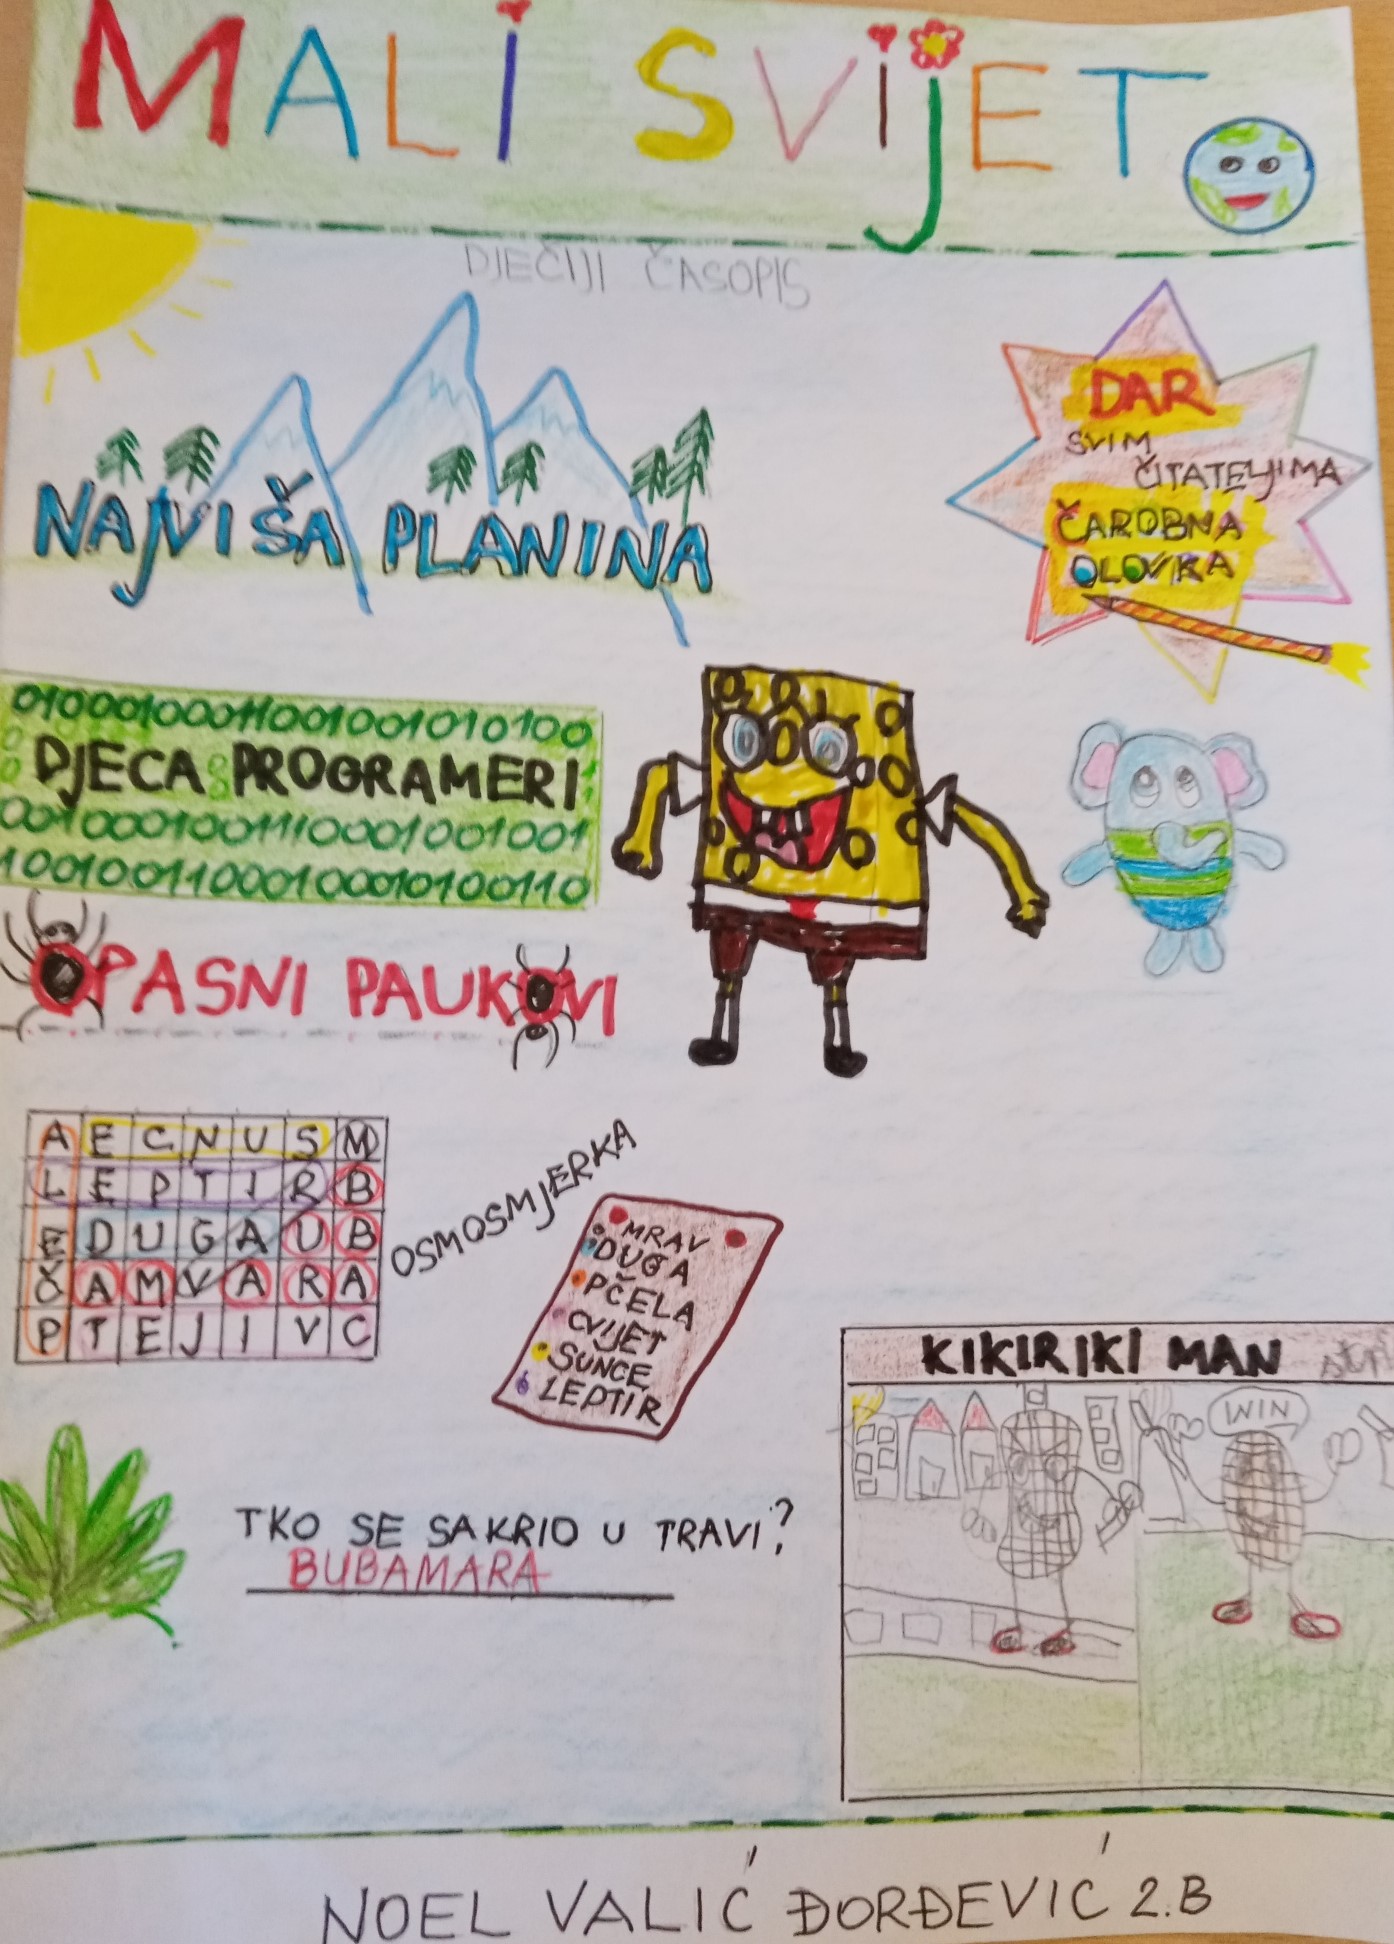 MALI SVIJET
DJEČIJI ČASOPIS
DAR
SVIM
ČITATELJIMA
ČAROBNA
OLOVKA
NAJVIŠA PLANINA
01000100011001001010100
DJECA PROGRAMERI
0010001001110001001001
10010011000100010100110
OPASNI PAUKOVI
A E C N U S M
L E P T I R B
E D U G A U B
Č A M V A R A
P T E J I V C
OSMOSMJERKA
MRAV
DUGA
PČELA
CVIJET
SUNCE
LEPTIR
KIKIRIKI MAN
WIN
TKO SE SAKRIO U TRAVI?
BUBAMARA
NOEL VALIĆ ĐORĐEVIĆ 2.B